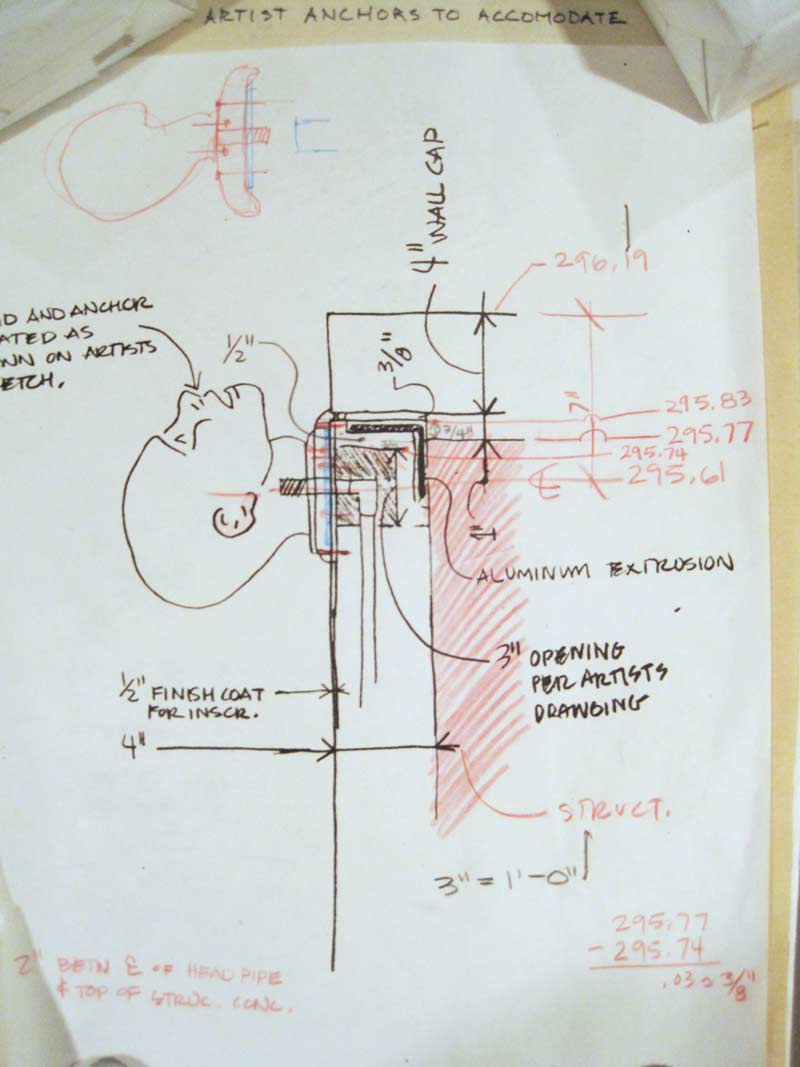 ARTIST ANCHORS TO ACCOMODATE
4" WALL CAP
296.19
D AND ANCHOR
ATED AS
WN ON ARTISTS
ETCH.
1/2"
3/8"
7"
3/4"
295.83
295.77
295.74
295.61
1"
ALUMINUM EXTRUSION
3" OPENING
PER ARTISTS
DRAWING
1/2" FINISH COAT
FOR INSCR.
4"
STRUCT.
3" = 1'-0"
295.77
- 295.74
.03 ≈ 3/8"
2" BETN ℄ OF HEAD PIPE
& TOP OF STRUC. CONC.